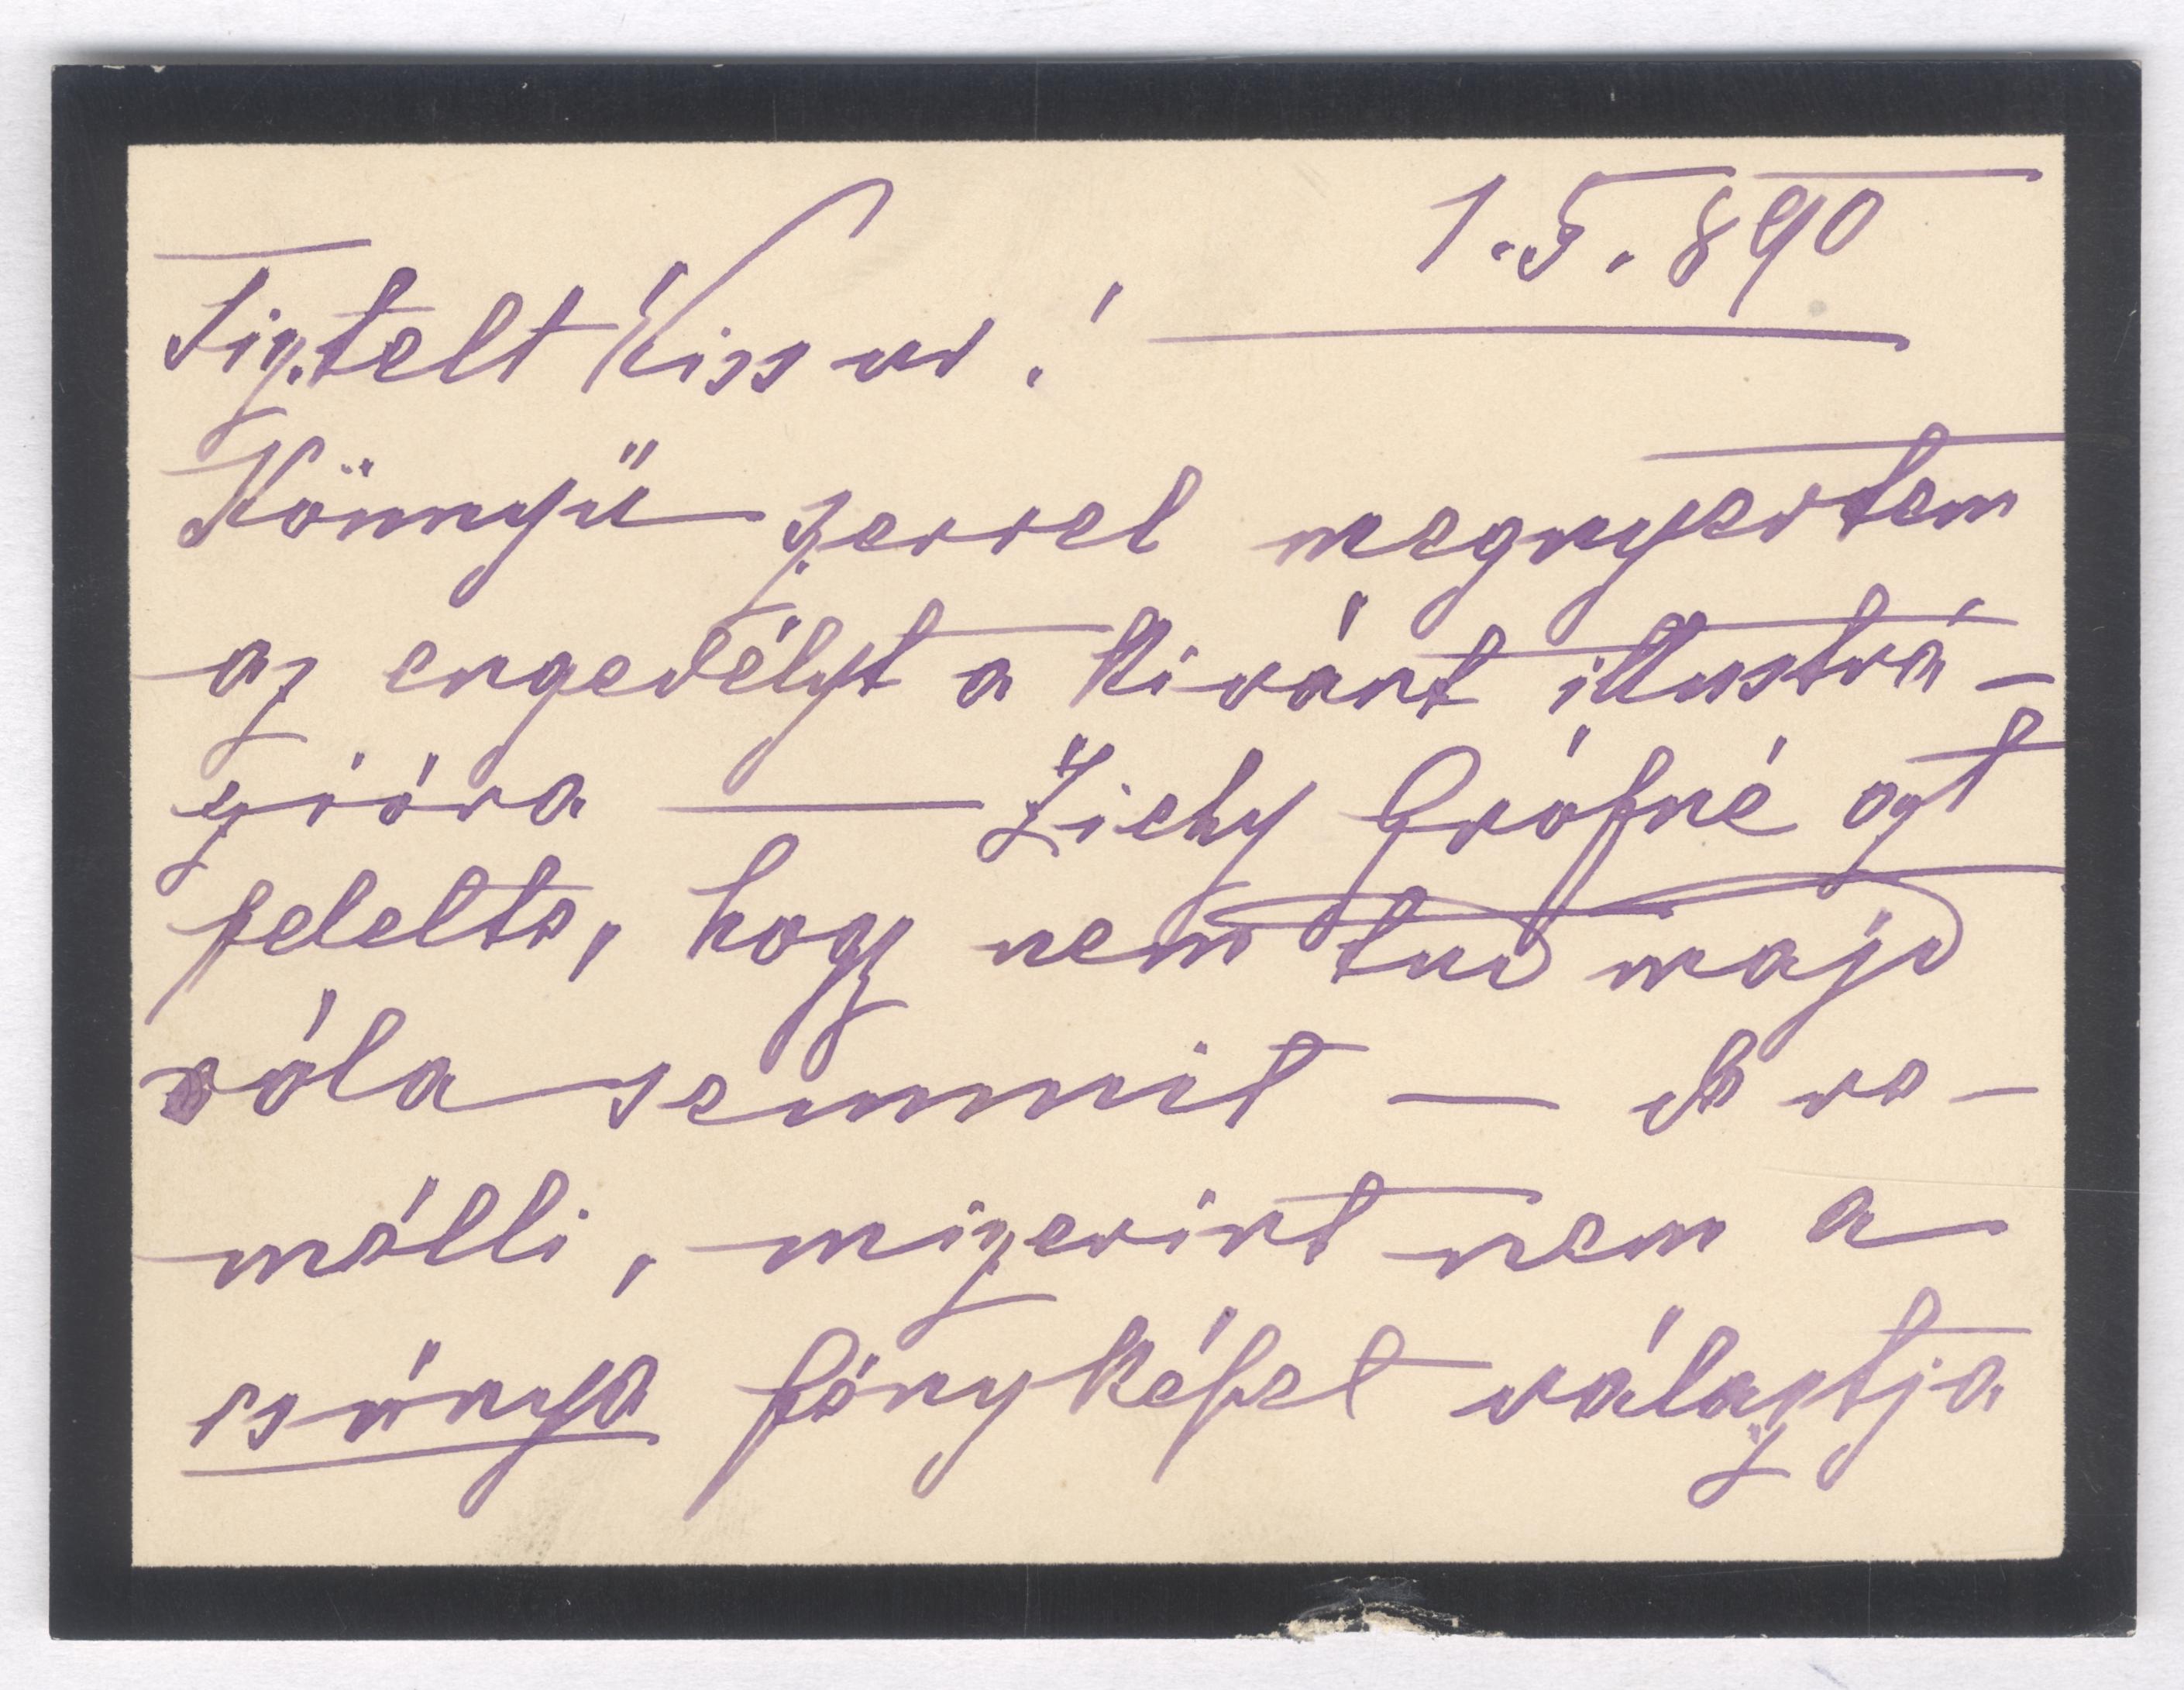 1.5.890
Tisztelt Kiss ur!
Könnyü szerrel megnyertem
az engedélyt a kivánt illustrá-
zióra — Zichy Grófné azt
felelte, hogy nem tud majd
róla semmit — És re-
mélli, miszerint nem a
csúnya fényképet választja